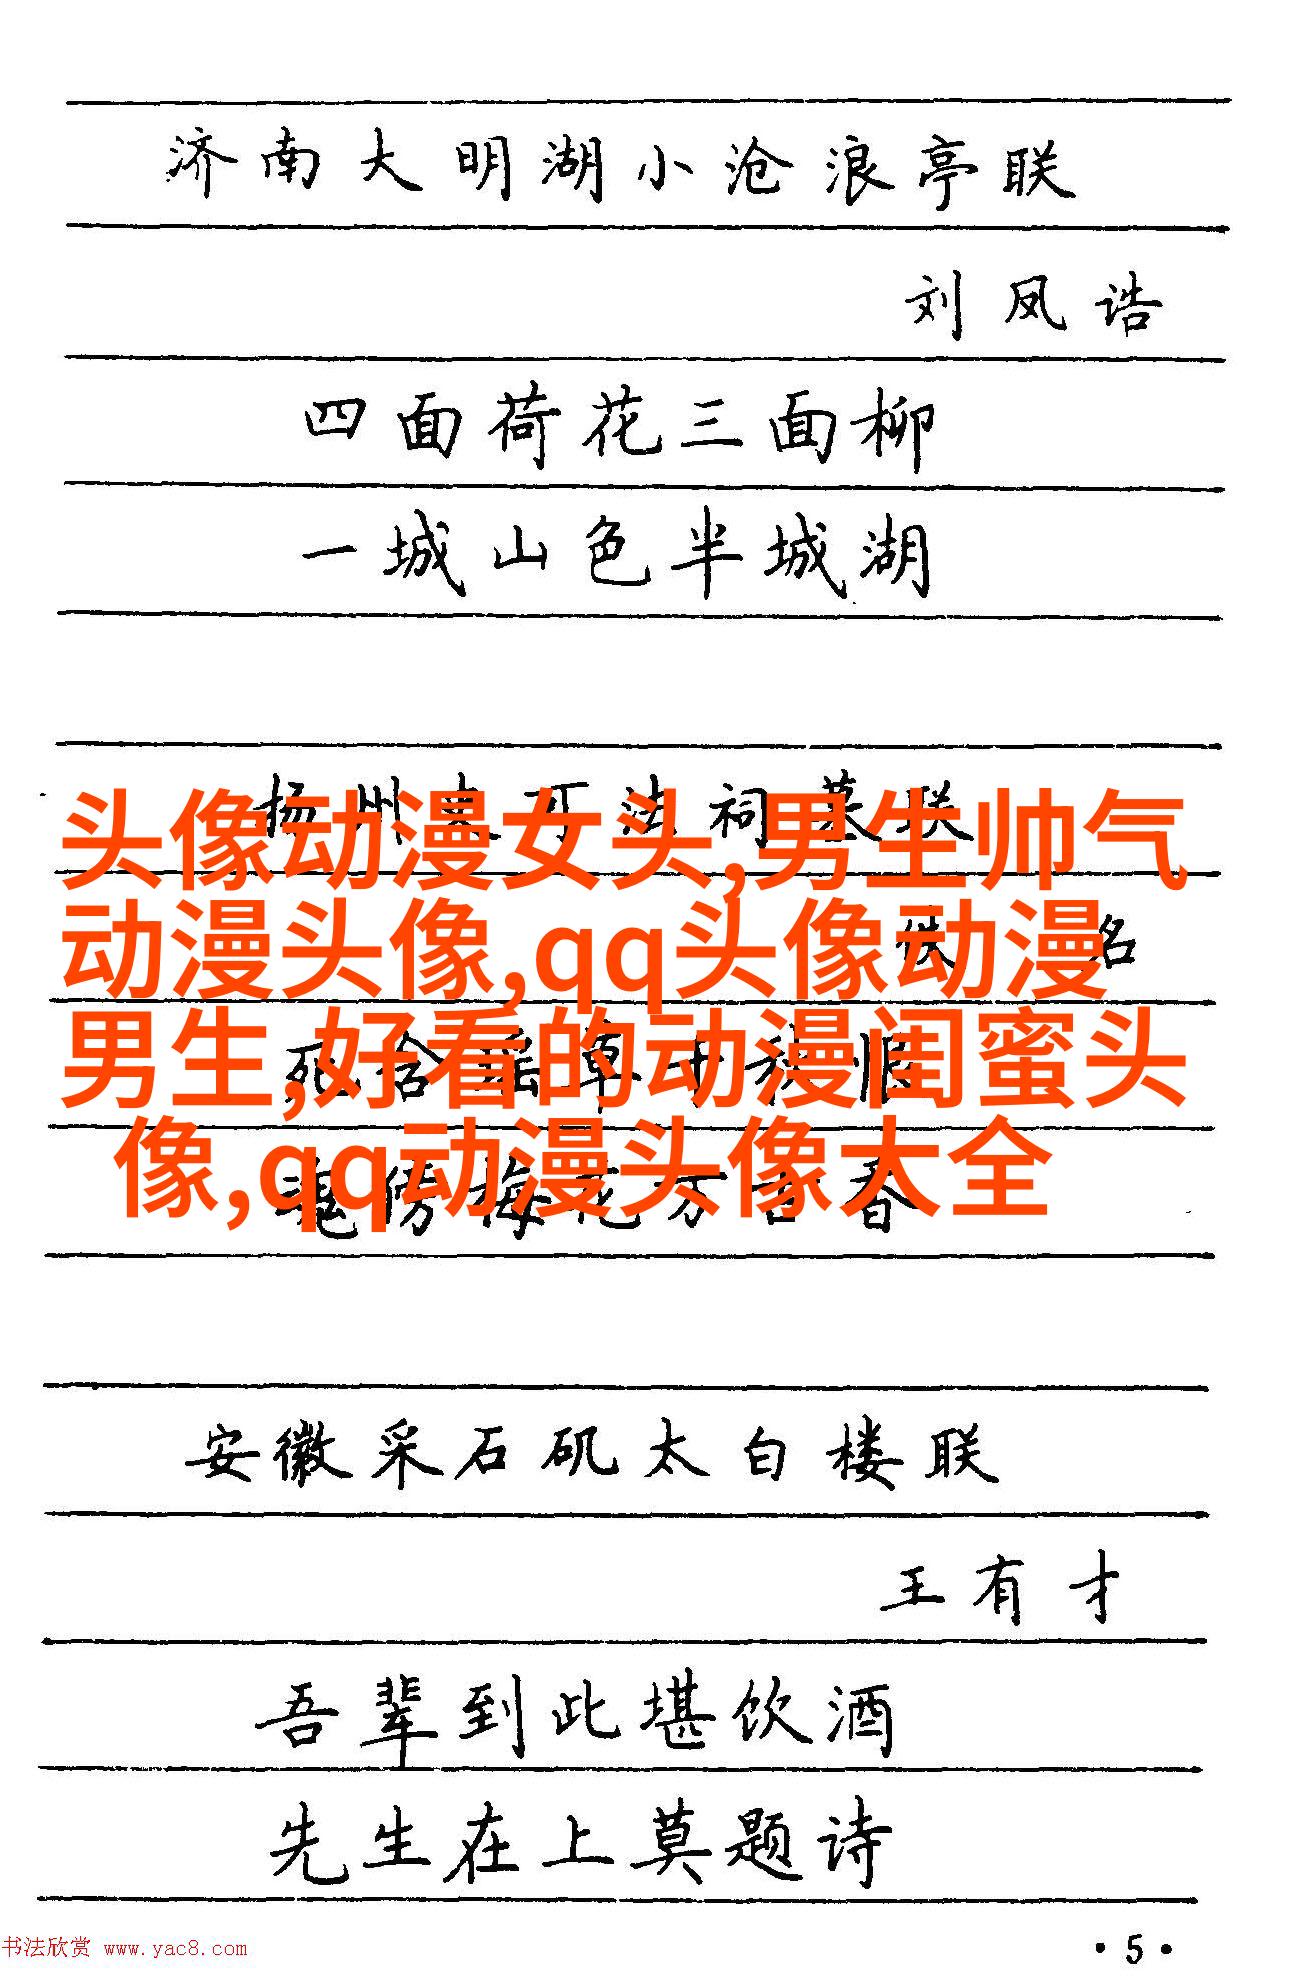 济南大明湖小沧浪亭联
刘凤诰
四面荷花三面柳
一城山色半城湖
扬州史可法祠墓联
佚名
头像动漫女头,男生帅气
动漫头像,qq头像动漫
男生,好看的动漫闺蜜头
像,qq动漫头像大全
魂傍梅花万古春
安徽采石矶太白楼联
王有才
吾辈到此堪饮酒
先生在上莫题诗
书法欣赏 www.yac8.com
·5·